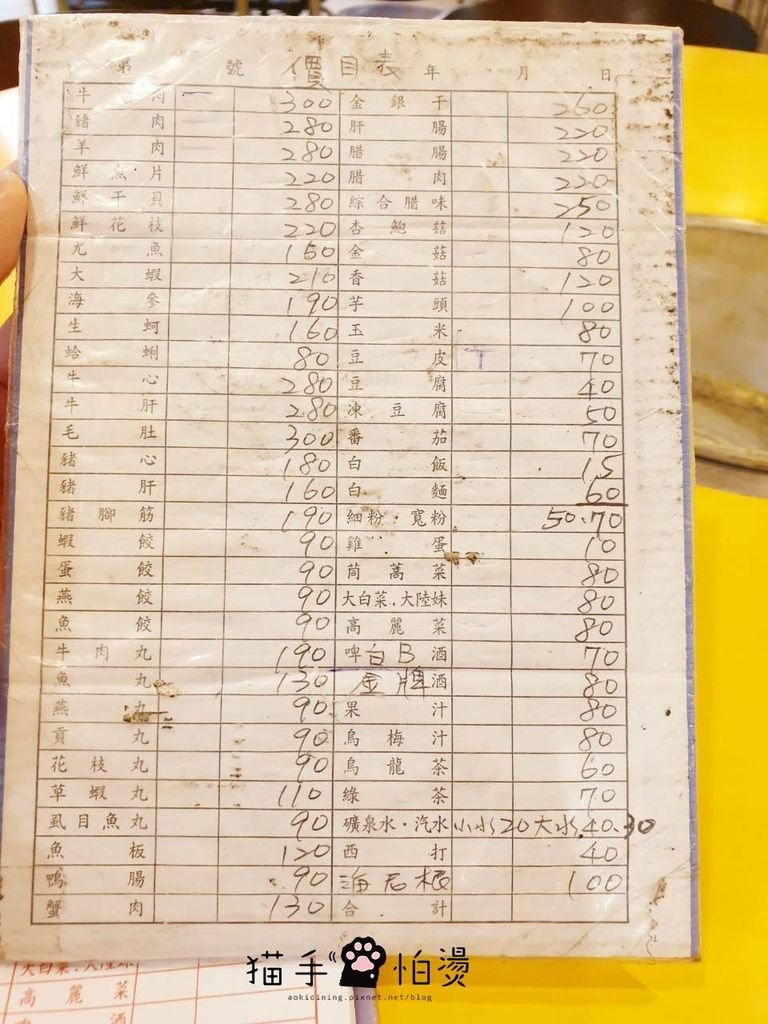 第 號 價目表 年 月 日
牛肉 300 金銀干 250
豬肉 280 肝腸 220
羊肉 280 腊腸 220
鮮魚片 220 腊肉 220
鮮干貝 280 綜合腊味 250
鮮花枝 220 杏鮑菇 120
尤魚 160 金菇 80
大蝦 210 香菇 120
海參 190 芋頭 100
生蚵 160 玉米 80
蛤蜊 80 豆皮 T 70
牛心 280 豆腐 40
牛肝 280 凍豆腐 50
毛肚 300 番茄 70
豬心 180 白飯 15
豬肝 160 白麵 60
豬腳筋 190 細粉·寬粉 50·70
蝦餃 90 雞蛋 10
蛋餃 90 茼萵菜 80
燕餃 90 大白菜·大陸妹 80
魚餃 90 高麗菜 80
牛肉丸 190 啤台B酒 70
魚丸 130 金牌酒 80
燕丸 90 果汁 80
貢丸 90 烏梅汁 80
花枝丸 90 烏龍茶 60
草蝦丸 110 綠茶 70
虱目魚丸 90 礦泉水·汽水 小水20大水40·30
魚板 120 西打 40
鴨腸 90 海尼根 100
蟹肉 130 合計
大白菜·大陸妹
高麗菜
啤酒
猫手怕燙
aokidining.pixnet.net/blog